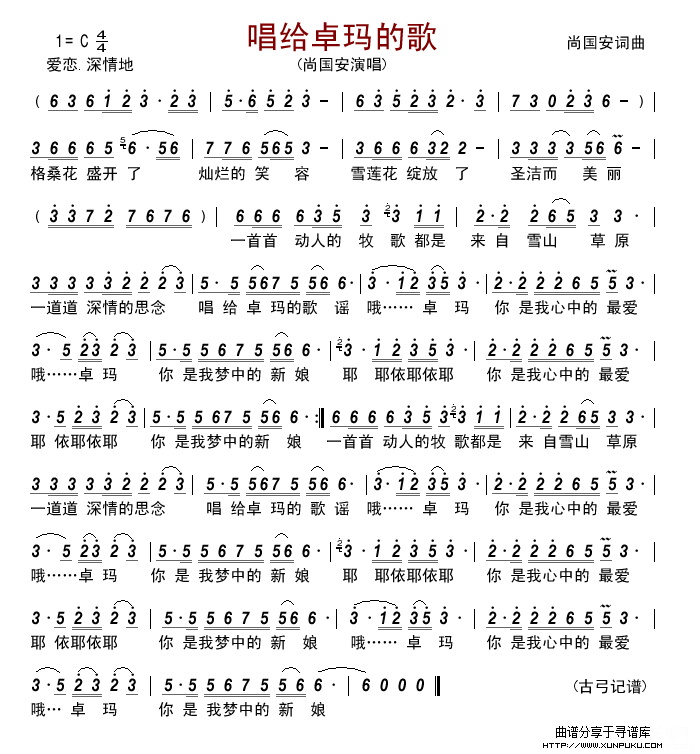 唱给卓玛的歌
1= C 4/4
尚国安词曲
爱恋.深情地
(尚国安演唱)
( 6 3 6 1 2 3 · 2 3 | 5 · 6 5 2 3 – | 6 3 5 2 3 · 2 | 7 3 0 2 3 6 – )|
3 6 6 6 5 5 6 · 5 6 | 7 7 6 5 6 5 3 · | 3 6 6 6 3 2 2 – | 3 3 3 3 5 5 6 6 – |
格桑花 盛开了 灿烂的 笑 容 雪莲花 绽放 了 圣洁而 美 丽
( 3 3 7 2 7 6 7 6 )| 6 6 6 6 3 5 3 2 3 1 1 | 2 · 2 2 6 5 3 3 |
一首首 动人的 牧 歌 都是 来 自 雪山 草 原
3 3 3 3 3 3 2 2 2 3 | 5 · 5 5 6 7 5 5 6 6 · | 3 · 1 2 3 5 3 · | 2 · 2 2 2 6 5 5 3 · |
一道道 深情的思念 唱 给 卓 玛的歌 谣 哦…… 卓 玛 你 是我心中的 最爱
3 · 5 2 3 2 3 | 5 · 5 5 6 7 5 5 6 6 · | 2 3 · 1 2 3 5 3 · | 2 · 2 2 2 6 5 5 3 · |
哦…… 卓 玛 你 是我梦中的 新 娘 耶 耶依耶依耶 你 是我心中的 最爱
3 · 5 2 3 2 3 | 5 · 5 5 6 7 5 5 6 6 · :| 6 6 6 6 3 5 3 2 3 1 1 | 2 · 2 2 6 5 3 3 |
耶 依耶依耶 你 是我梦中的新 娘 一首首 动人的牧 歌都是 来 自雪山 草原
3 3 3 3 3 3 2 2 2 3 | 5 · 5 5 6 7 5 5 6 6 · | 3 · 1 2 3 5 3 · | 2 · 2 2 2 6 5 5 3 · |
一道道 深情的思念 唱 给 卓玛的 歌 谣 哦…… 卓 玛 你 是我心中的 最爱
3 · 5 2 3 2 3 | 5 · 5 5 6 7 5 5 6 6 · | 2 3 · 1 2 3 5 3 · | 2 · 2 2 2 6 5 5 3 · |
哦…… 卓 玛 你 是 我梦中的 新 娘 耶 耶依耶依耶 你 是我心中的 最爱
3 · 5 2 3 2 3 | 5 · 5 5 6 7 5 5 6 6 · | 3 · 1 2 3 5 3 · | 2 · 2 2 2 6 5 5 3 · |
耶 依耶依耶 你 是 我梦中的 新 娘 哦…… 卓 玛 你 是我心中的 最爱
3 · 5 2 3 2 3 | 5 · 5 5 6 7 5 5 6 6 · | 6 0 0 0 ‖
(古弓记谱)
哦… 卓 玛 你 是我梦中的 新 娘
曲谱分享于寻谱库
HTTP://WWW.XUNPUKU.COM